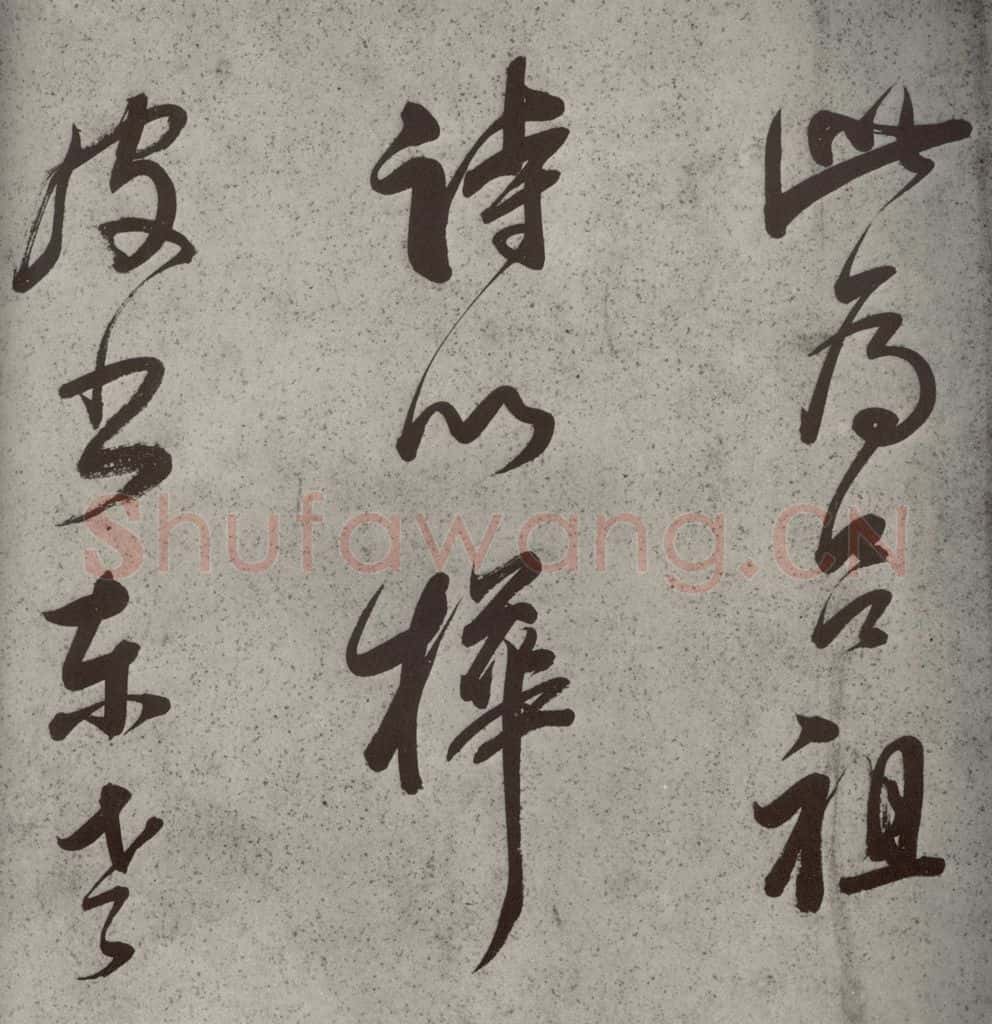 此為呂祖
詩以樺
皮書東老
Shufawang.CN